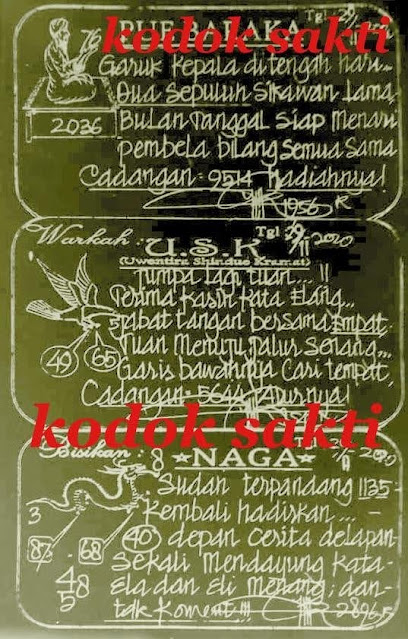 Tgl: 29/
kodok sakti
Garuk kepala ditengah hari...
Dua Sepuluh Sikawan Lama
2036
Bulan Tanggal Siap Menari
pembela bilang Semua Sama
Cadangan: 9514 hadiahnya!
1956 R
Warkah: U.S.K Tgl 29/11 2020
(Uwentira Shindue Kramat)
Jumpa lagi tuan...!!
Terima kasih kata Elang...
Jabat tangan bersama Empat
49 65
Tuan Menuju Jalur Senang...
Garis bawahnya Cari tempat,
Cadangan: 5644
kodok sakti
Bisikan: 8 ★NAGA★
Sudah terpandang 1135-
3
Kembali hadirkan... -
87 - 68
40 depan Cerita delapan
Sekali Mendayung Kata-
48
5
Ela dan Eli Menang; dan-
tak Koment!!!
2896 R